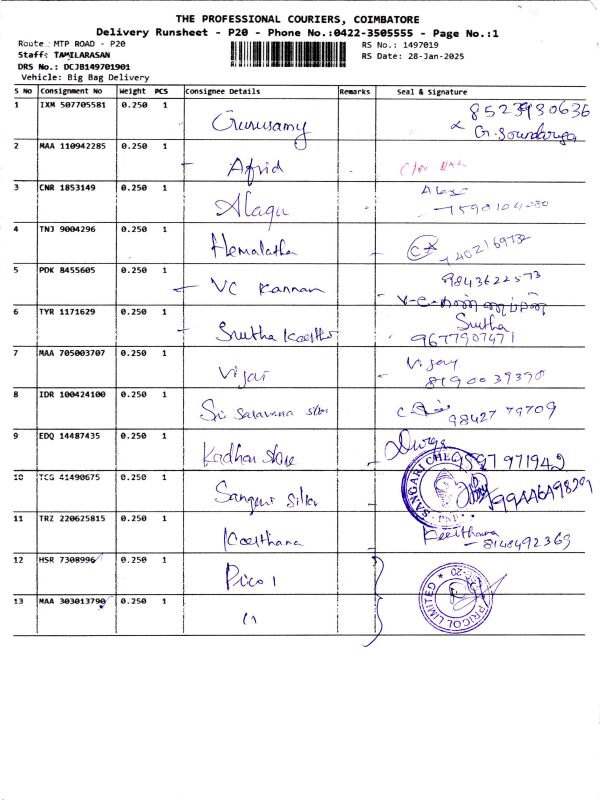 THE PROFESSIONAL COURIERS, COIMBATORE
Delivery Runsheet - P20 - Phone No.:0422-3505555 - Page No.:1
Route : MTP ROAD - P20
RS No.: 1497019
Staff: TAMILARASAN
RS Date: 28-Jan-2025
DRS No.: DCJB149701901
Vehicle: Big Bag Delivery
S No Consignment No Weight PCS Consignee Details Remarks Seal & Signature
1 IXM 507705581 0.250 1 Gurusamy 8523930636
G. Soundarya
2 MAA 110942285 0.250 1 Afrid
3 CNR 1853149 0.250 1 Alagu 7590104080
4 TNJ 9004296 0.250 1 Hemalatha
5 PDK 8455605 0.250 1 VC Kannan 9843622573
6 TYR 1171629 0.250 1 Sruthakeerthi Srutha
9677907471
7 MAA 705003707 0.250 1 Vijai Vijay
8190039390
8 IDR 100424100 0.250 1 Sri Saravana store 98427 79709
9 EDQ 14487435 0.250 1 Kadhar store Durga
9597 971942
10 TCG 41490675 0.250 1 Sangeri Silks SANGARI
11 TRZ 220625815 0.250 1 Keerthana Keerthana
8148492369
12 HSR 7308996 0.250 1 Pricol PRICOL LIMITED
13 MAA 303013790 0.250 1 "